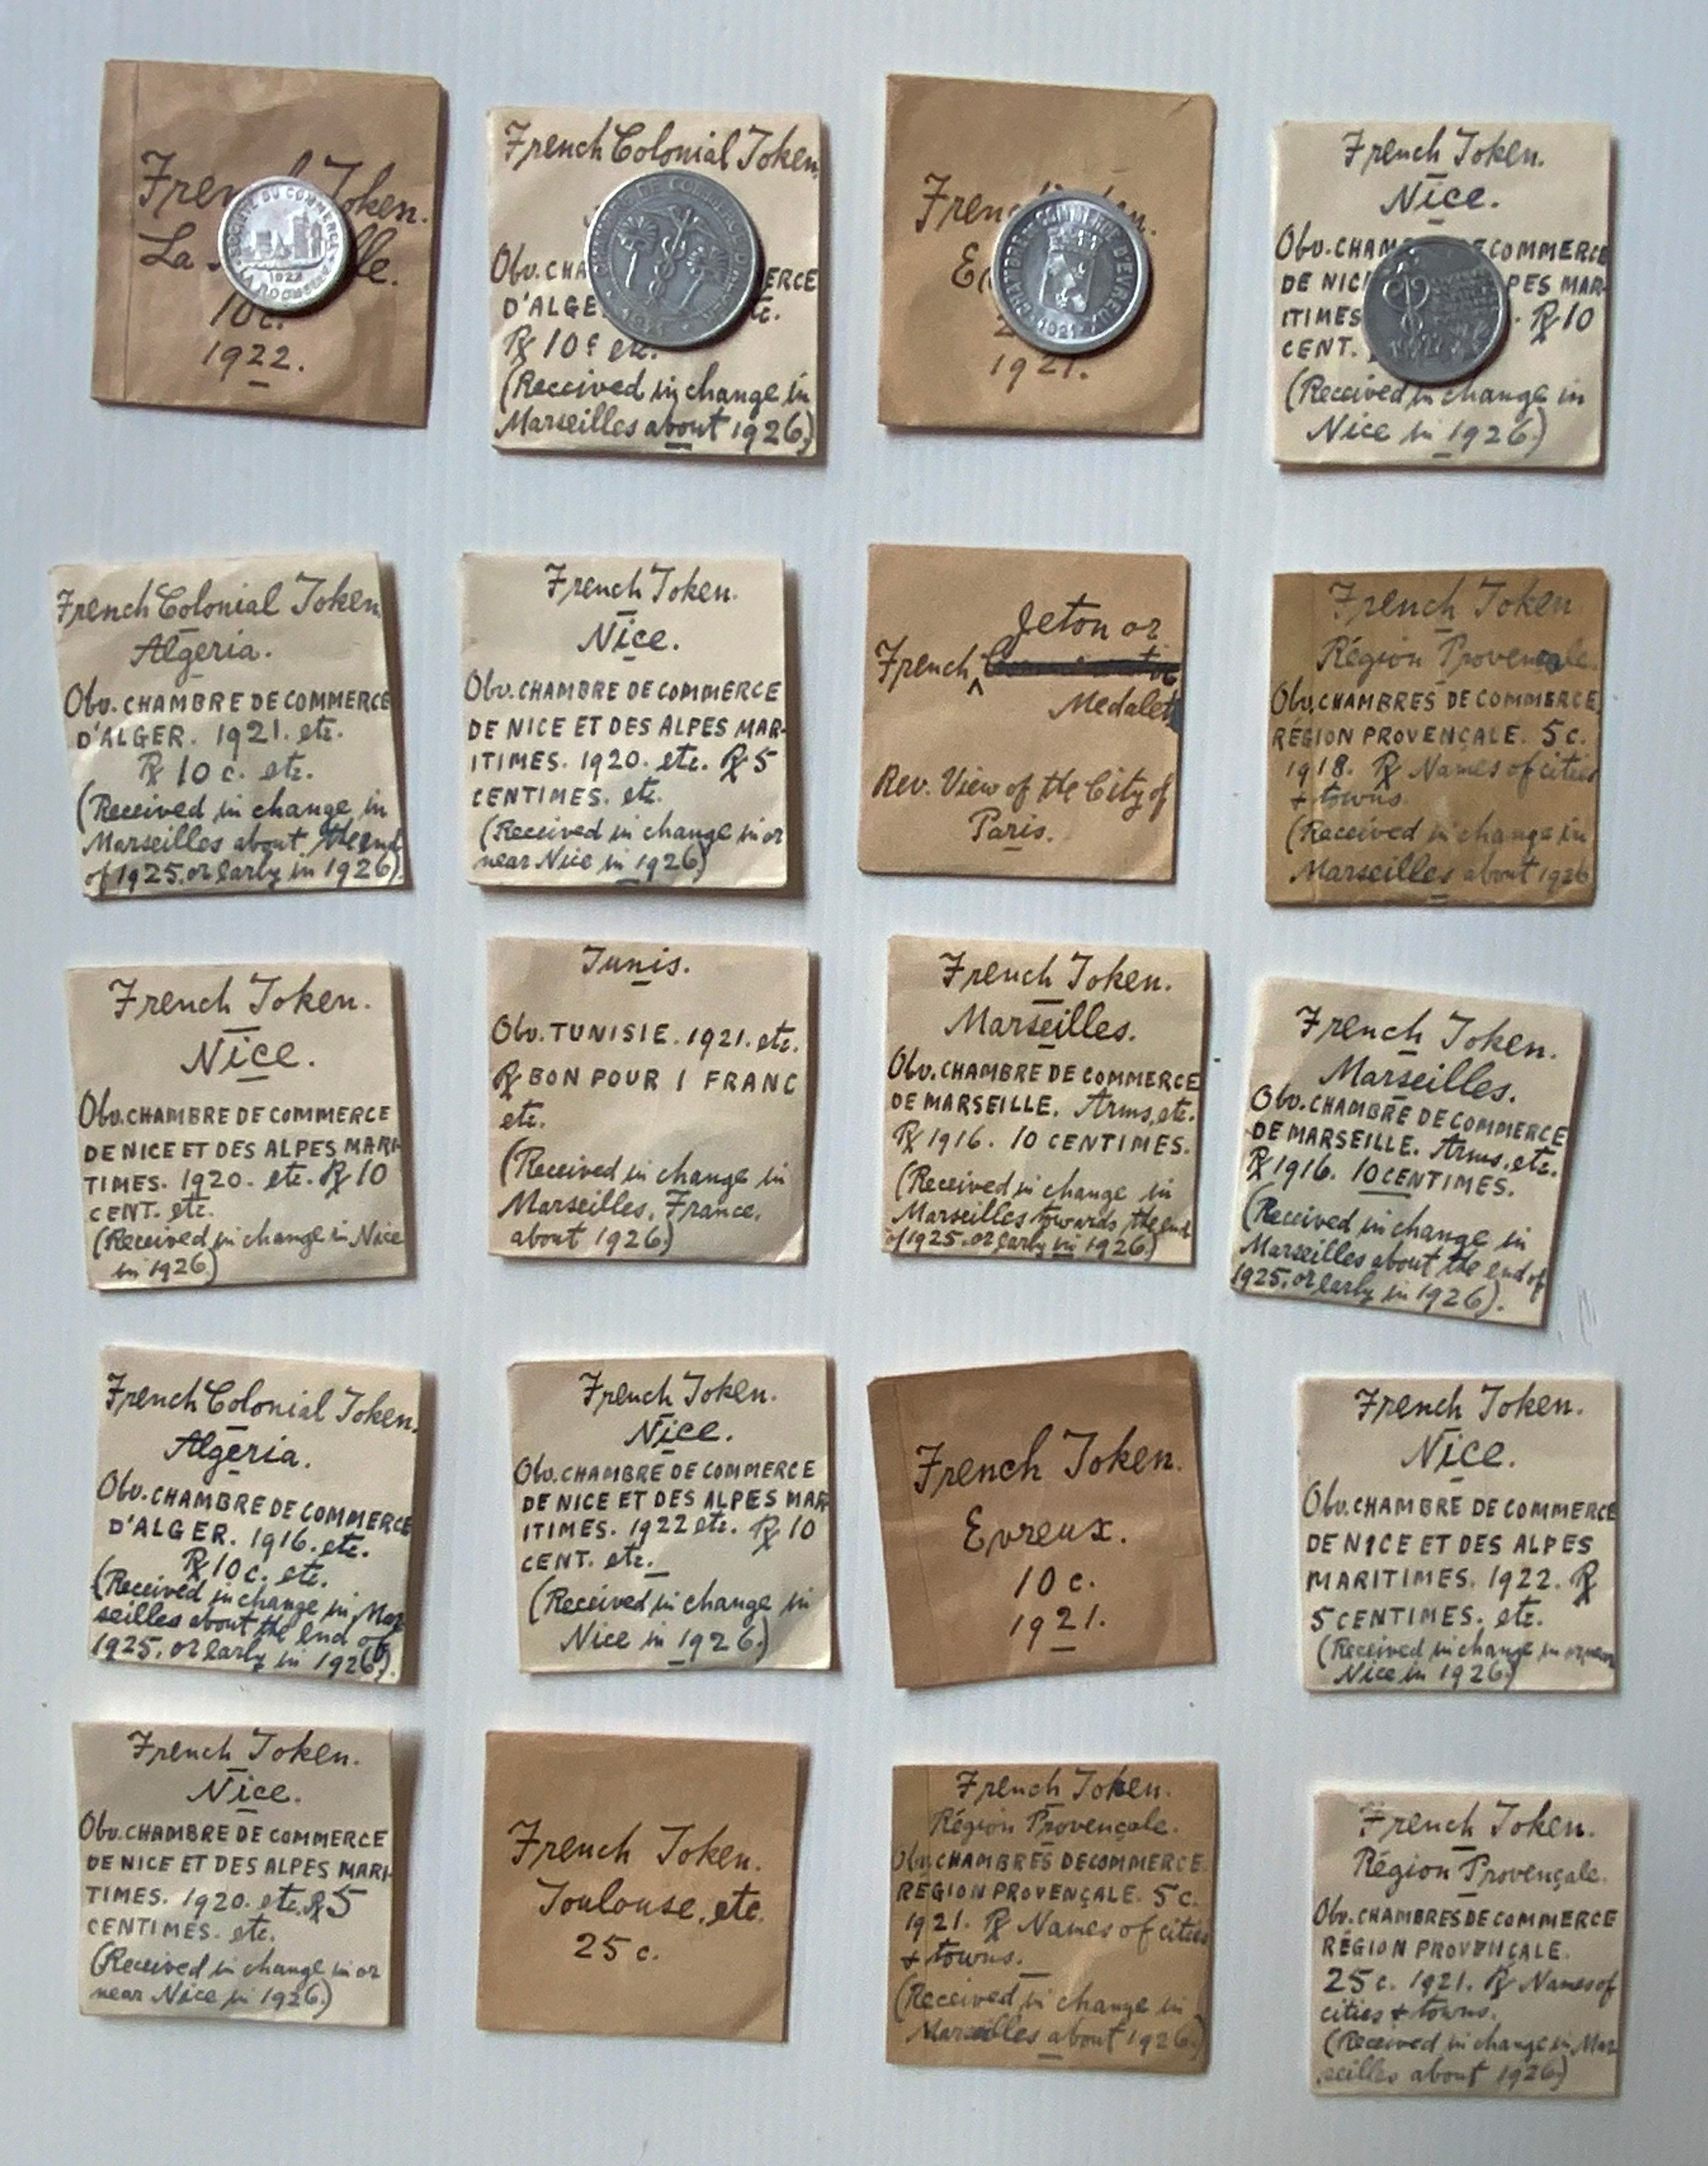 French Token.
La
10c.
1922.
SOCIÉTÉ DU COMMERCE
1922
LA ROCHELLE
French Colonial Token.
Obv. CHA ERCE
D'ALGE etc.
℞ 10c etc.
(Received in change in
Marseilles about 1926.)
CHAMBRE DE COMMERCE
French
1921.
CHAMBRE DE COMMERCE D'EVREUX
1921
French Token.
Nice.
Obv. CHAM E COMMERCE
DE NIC PES MAR-
ITIMES . ℞ 10
CENT.
(Received in change in
Nice in 1926.)
1922
French Colonial Token.
Algeria.
Obv. CHAMBRE DE COMMERCE
D'ALGER. 1921. etc.
℞ 10 c. etc.
(Received in change in
Marseilles about the end
of 1925, or early in 1926.)
French Token.
Nice.
Obv. CHAMBRE DE COMMERCE
DE NICE ET DES ALPES MAR-
ITIMES. 1920. etc. ℞ 5
CENTIMES. etc.
(Received in change in or
near Nice in 1926.)
Jeton or
French
Medalet
Rev. View of the City of
Paris.
French Token
Région Provençale.
Obv. CHAMBRES DE COMMERCE.
RÉGION PROVENÇALE. 5 c.
1918. ℞ Names of cities
+ towns.
(Received in change in
Marseilles about 1926
French Token.
Nice.
Obv. CHAMBRE DE COMMERCE
DE NICE ET DES ALPES MARI-
TIMES. 1920. etc. ℞ 10
CENT. etc.
(Received in change in Nice
in 1926.)
Tunis.
Obv. TUNISIE. 1921. etc.
℞ BON POUR 1 FRANC
etc.
(Received in change in
Marseilles, France,
about 1926.)
French Token.
Marseilles.
Obv. CHAMBRE DE COMMERCE
DE MARSEILLE. Arms, etc.
℞ 1916. 10 CENTIMES.
(Received in change in
Marseilles towards the end
of 1925, or early in 1926.)
French Token.
Marseilles.
Obv. CHAMBRE DE COMMERCE
DE MARSEILLE. Arms, etc.
℞ 1916. 10 CENTIMES.
(Received in change in
Marseilles about the end of
1925, or early in 1926.)
French Colonial Token.
Algeria.
Obv. CHAMBRE DE COMMERCE
D'ALGER. 1916. etc.
℞ 10 c. etc.
(Received in change in Mar
seilles about the end of
1925, or early in 1926.)
French Token.
Nice.
Obv. CHAMBRE DE COMMERCE
DE NICE ET DES ALPES MAR
ITIMES. 1922 etc. ℞ 10
CENT. etc.
(Received in change in
Nice in 1926.)
French Token.
Evreux.
10 c.
1921.
French Token.
Nice.
Obv. CHAMBRE DE COMMERCE
DE NICE ET DES ALPES
MARITIMES. 1922. ℞
5 CENTIMES. etc.
(Received in change in or near
Nice in 1926.)
French Token.
Nice.
Obv. CHAMBRE DE COMMERCE
DE NICE ET DES ALPES MARI-
TIMES. 1920. etc. ℞ 5
CENTIMES. etc.
(Received in change in or
near Nice in 1926.)
French Token.
Toulouse, etc.
25 c.
French Token.
Région Provençale.
Obv. CHAMBRES DE COMMERCE.
RÉGION PROVENÇALE. 5 c.
1921. ℞ Names of cities
+ towns.
(Received in change in
Marseilles about 1926.)
French Token.
Région Provençale.
Obv. CHAMBRES DE COMMERCE
RÉGION PROVENÇALE.
25 c. 1921. ℞ Names of
cities + towns.
(Received in change in Mar
seilles about 1926)